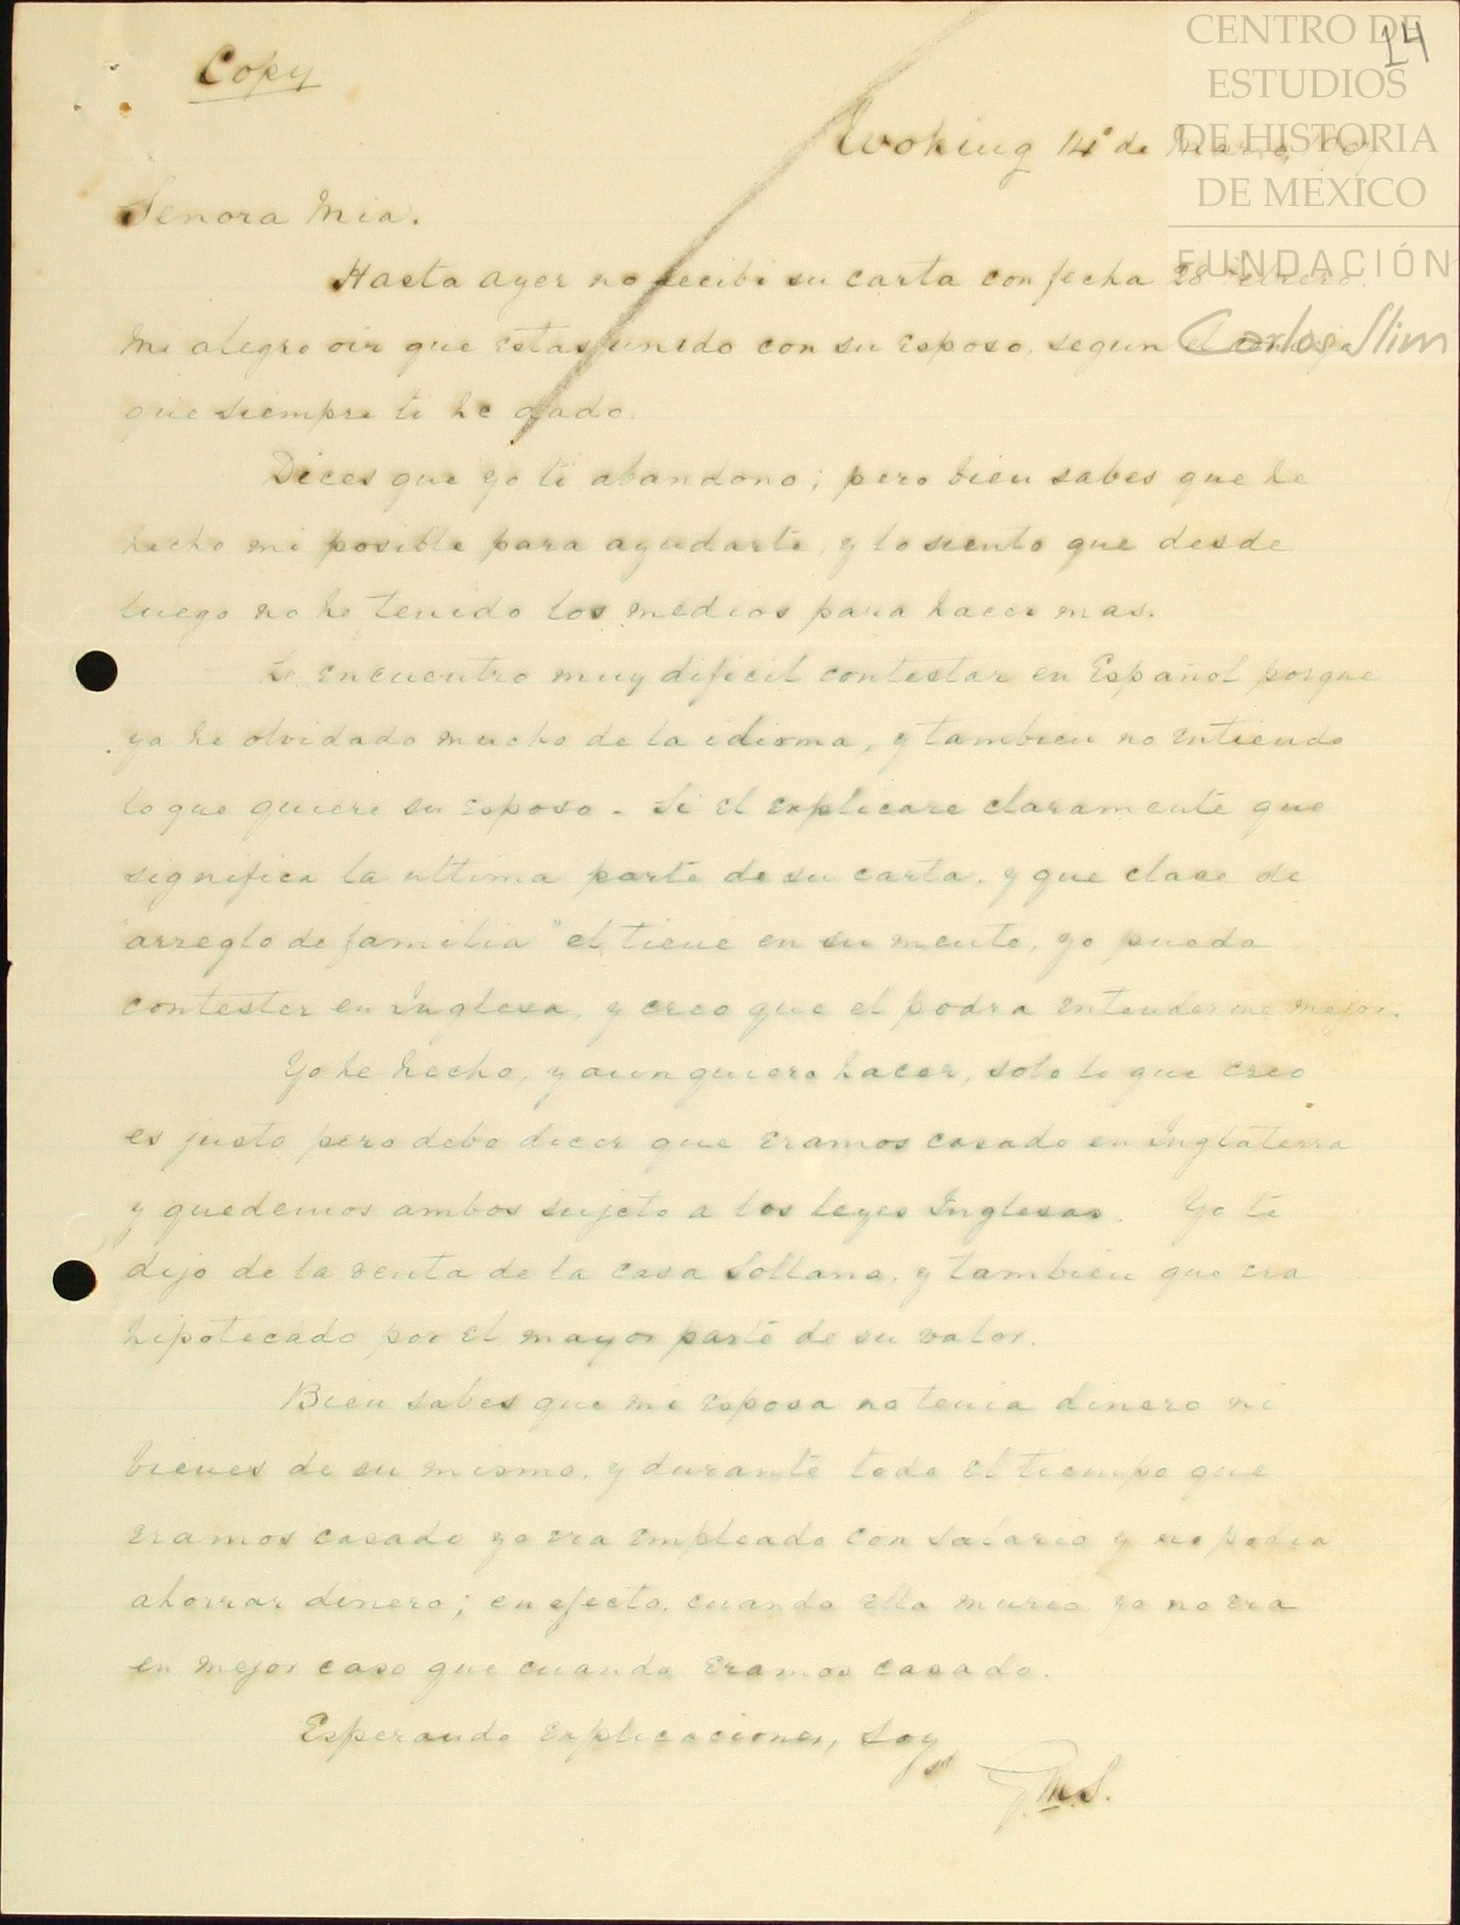 CENTRO DE
ESTUDIOS
DE HISTORIA
DE MÉXICO
FUNDACIÓN
Carlos Slim
14
Copy
Woking 14° de Marzo,
Senora Mia.
Hasta ayer no recibi su carta con fecha 28 Febrero.
Me alegro oir que estas unido con su esposo, segun el
que siempre te he dado.
Dices que yo te abandono; pero bien sabes que he
hecho mi posible para ayudarte, y lo siento que desde
luego no he tenido los medios para hacer mas.
Lo encuentro muy dificil contestar en Español porque
ya he olvidado mucho de la idioma, y tambien no entiendo
lo que quiere su esposo. Si el explicare claramente que
significa la ultima parte de su carta, y que clase de
"arreglo de familia" el tiene en su mente, yo puedo
contester en Inglesa, y creo que el podra entenderme mejor.
Yo he hecho, y aun quiero hacer, solo lo que creo
es justo pero debo decir que eramos casado en Inglaterra
y quedemos ambos sujeto a los leyes Inglesas. Yo te
dijo de la renta de la casa Sollano, y tambien que era
hipotecado por el mayor parte de su valor.
Bien sabes que mi esposa no tenia dinero ni
bienes de su mismo, y durante todo el tiempo que
eramos casado yo era empleado con salario y no podia
ahorrar dinero; en efecto, cuando ella murio yo no era
en mejor caso que cuando eramos casado.
Esperando explicaciones, soy
G.M.S.